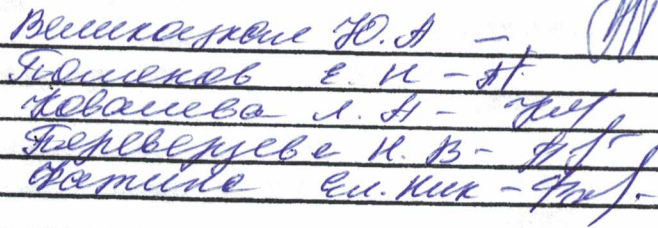 Великоцкая Ю. А –
Поменков Е. Н –
Ковалева Л. А –
Переверзева Н. В –
Фатина Ел. Ник –